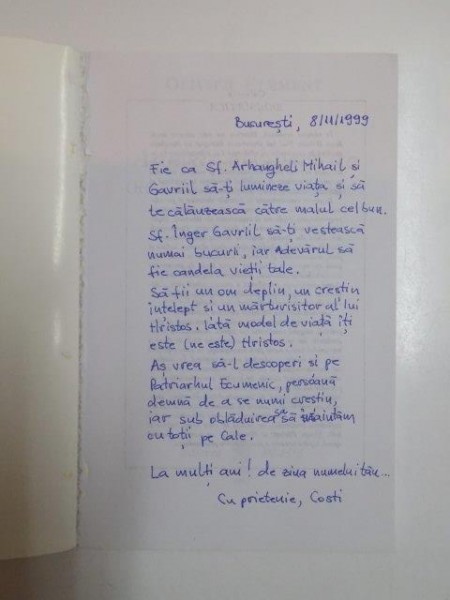 București, 8/11/1999
Fie ca Sf. Arhangheli Mihail și
Gavriil să-ți lumineze viața și să
te călăuzească către malul cel bun.
Sf. Înger Gavriil să-ți vestească
numai bucurii, iar Adevărul să
fie candela vieții tale.
Să fii un om deplin, un creștin
înțelept și un mărturisitor al lui
Hristos. Iată model de viață îți
este (ne este) Hristos.
Aș vrea să-l descoperi și pe
Patriarhul Ecumenic, persoană
demnă de a se numi creștin,
iar sub oblăduirea sa să
cu toții pe Cale.
La mulți ani! de ziua numelui tău...
Cu prietenie, Costi